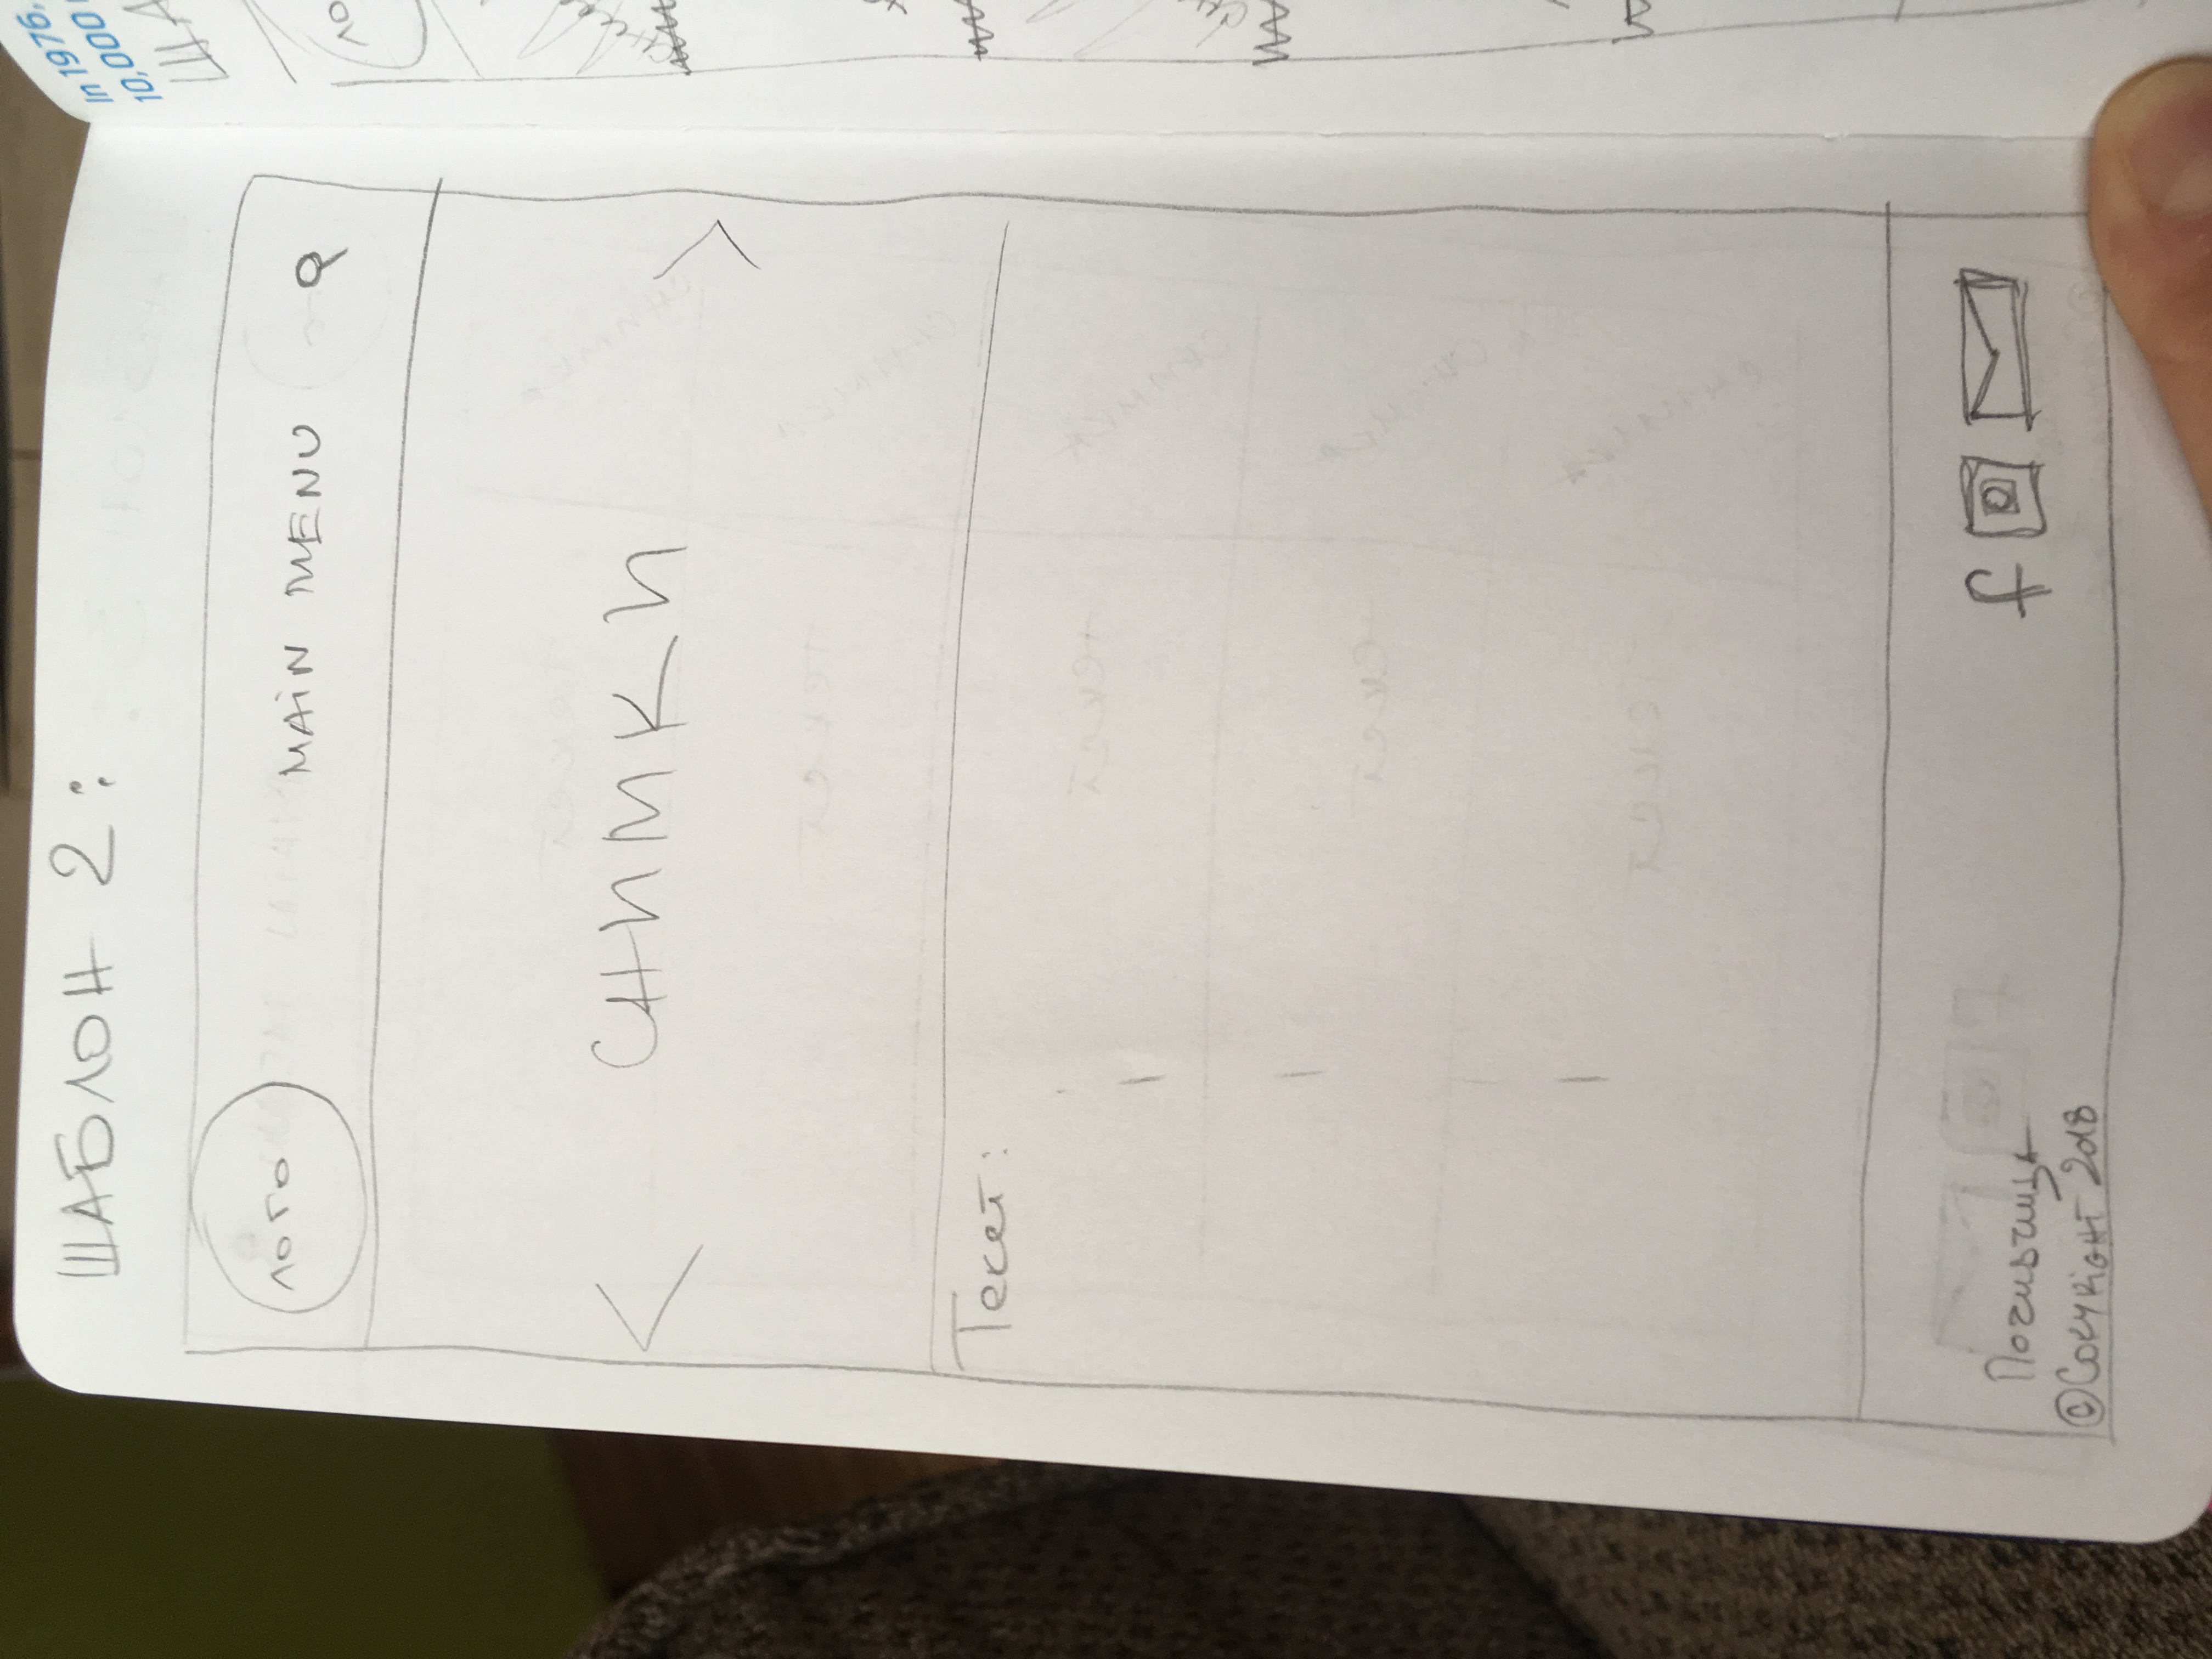 ШАБЛОН 2:
лого
MAIN MENU
СНИМКИ
Текст:
f
Почивчица
©COPYRIGHT 2018
In 1976,
10,000
ША
ло